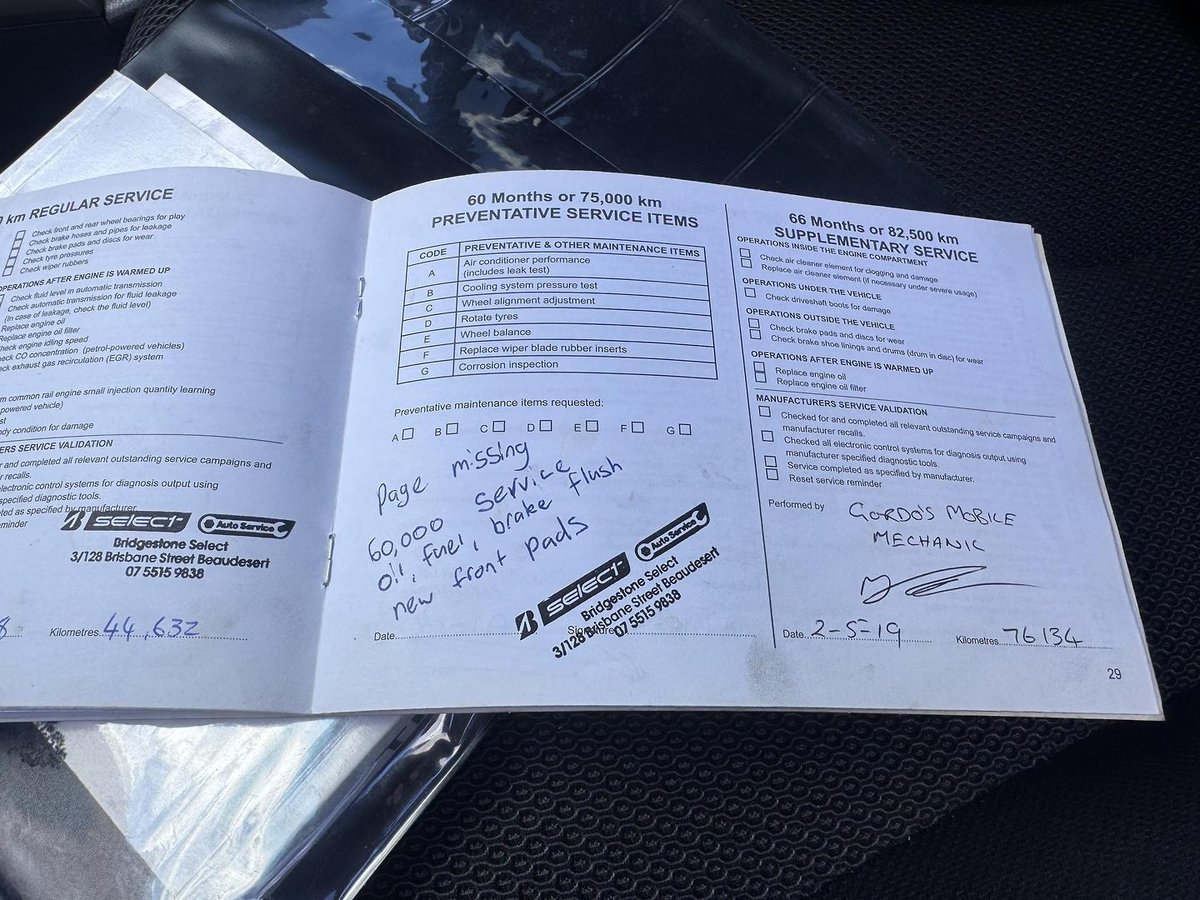 km REGULAR SERVICE
Check front and rear wheel bearings for play
Check brake hoses and pipes for leakage
Check brake pads and discs for wear
Check tyre pressures
Check wiper rubbers
OPERATIONS AFTER ENGINE IS WARMED UP
Check fluid level in automatic transmission
Check automatic transmission for fluid leakage
(In case of leakage, check the fluid level)
Replace engine oil
Replace engine oil filter
Check engine idling speed
CO concentration (petrol-powered vehicles)
exhaust gas recirculation (EGR) system
common rail engine small injection quantity learning
powered vehicle)
condition for damage
SERVICE VALIDATION
and completed all relevant outstanding service campaigns and
recalls.
electronic control systems for diagnosis output using
specified diagnostic tools.
as specified by manufacturer.
reminder
B SELECT Auto Service
Bridgestone Select
3/128 Brisbane Street Beaudesert
07 5515 9838
8 Kilometres 44,632
60 Months or 75,000 km
PREVENTATIVE SERVICE ITEMS
CODE PREVENTATIVE & OTHER MAINTENANCE ITEMS
A Air conditioner performance
(includes leak test)
B Cooling system pressure test
C Wheel alignment adjustment
D Rotate tyres
E Wheel balance
F Replace wiper blade rubber inserts
G Corrosion inspection
Preventative maintenance items requested:
A B C D E F G
Page missing
60,000 service
oil, fuel, brake flush
new front pads
B SELECT Auto Service
Bridgestone Select
3/128 Brisbane Street Beaudesert
07 5515 9838
Date Signature
66 Months or 82,500 km
SUPPLEMENTARY SERVICE
OPERATIONS INSIDE THE ENGINE COMPARTMENT
Check air cleaner element for clogging and damage
Replace air cleaner element (if necessary under severe usage)
OPERATIONS UNDER THE VEHICLE
Check driveshaft boots for damage
OPERATIONS OUTSIDE THE VEHICLE
Check brake pads and discs for wear
Check brake shoe linings and drums (drum in disc) for wear
OPERATIONS AFTER ENGINE IS WARMED UP
Replace engine oil
Replace engine oil filter
MANUFACTURERS SERVICE VALIDATION
Checked for and completed all relevant outstanding service campaigns and
manufacturer recalls.
Checked all electronic control systems for diagnosis output using
manufacturer specified diagnostic tools.
Service completed as specified by manufacturer.
Reset service reminder
Performed by GORDO'S MOBILE
MECHANIC
Date 2-5-19 Kilometres 76134
29